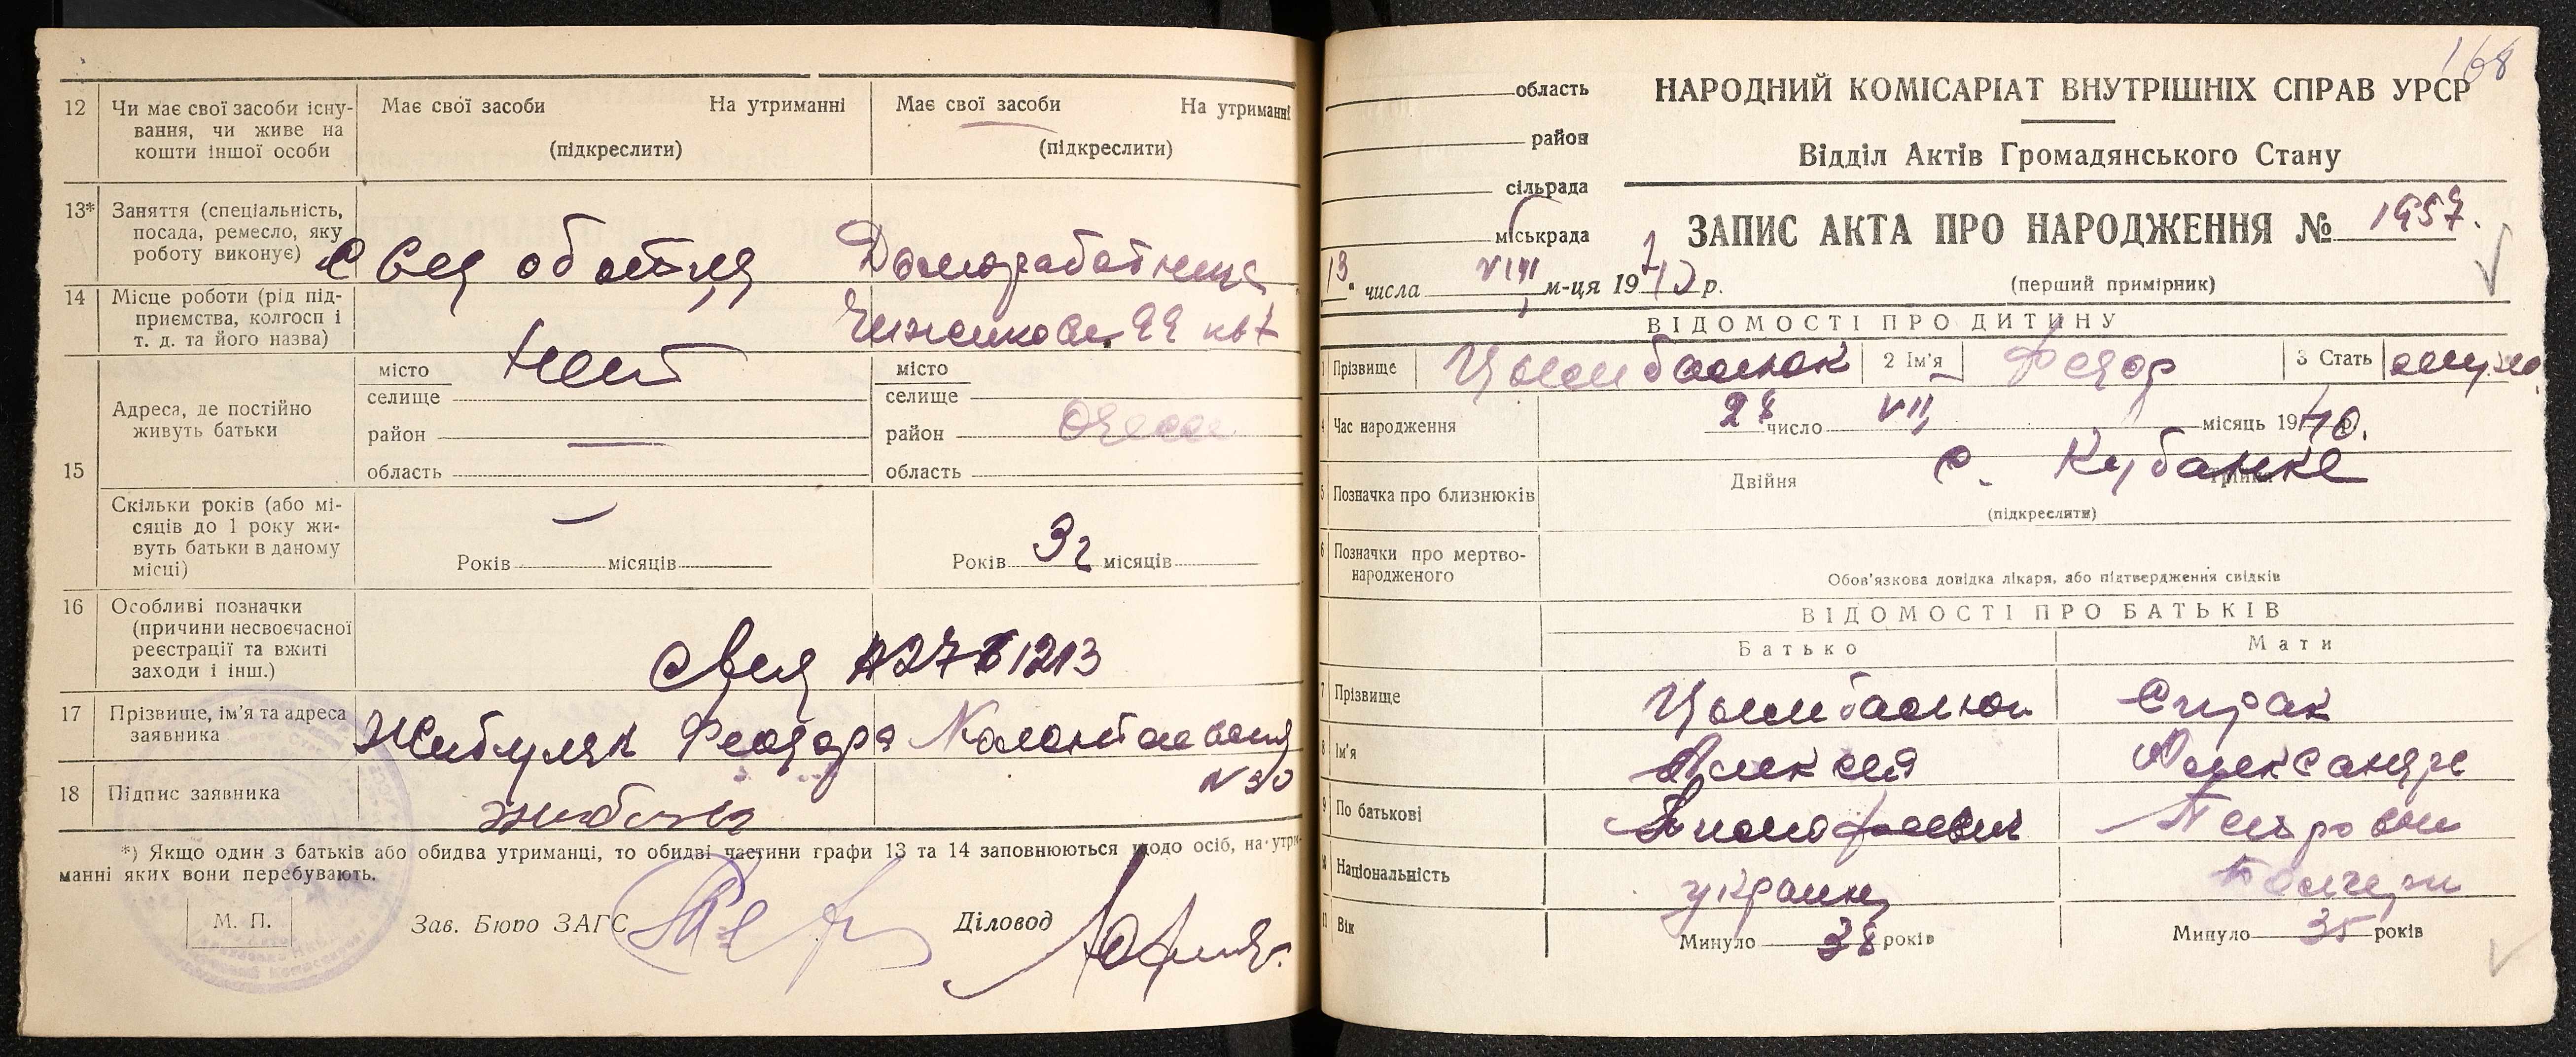 12 Чи має свої засоби існу-
вання, чи живе на
кошти іншої особи
Має свої засоби На утриманні
(підкреслити)
Має свої засоби На утриманні
(підкреслити)
13* Заняття (спеціальність,
посада, ремесло, яку
роботу виконує)
Домработница
14 Місце роботи (рід під-
приємства, колгосп і
т. д. та його назва)
нет
15 Адреса, де постійно
живуть батьки
місто
селище
район
область
місто
селище
район Одесса
область
Скільки років (або мі-
сяців до 1 року жи-
вуть батьки в даному
місці)
Років місяців
Років 3 г місяців
16 Особливі позначки
(причини несвоєчасної
реєстрації та вжиті
заходи і інш.)
17 Прізвище, ім'я та адреса
заявника
N 30
18 Підпис заявника
*) Якщо один з батьків або обидва утриманці, то обидві частини графи 13 та 14 заповнюються щодо осіб, на утри-
манні яких вони перебувають.
М. П. Зав. Бюро ЗАГС Діловод
168
область
район
сільрада
міськрада
13 " числа VIII м-ця 1940 р.
НАРОДНИЙ КОМІСАРІАТ ВНУТРІШНІХ СПРАВ УРСР
Відділ Актів Громадянського Стану
ЗАПИС АКТА ПРО НАРОДЖЕННЯ № 1957.
(перший примірник)
ВІДОМОСТІ ПРО ДИТИНУ
1 Прізвище Цымбалюк 2 Ім'я Федор 3 Стать муж.
4 Час народження 28 число VII місяць 1940 р.
с. Кубанке
5 Позначка про близнюків Двійня Трійня
(підкреслити)
6 Позначки про мертво-
народженого
Обов'язкова довідка лікаря, або підтвердження свідків
ВІДОМОСТІ ПРО БАТЬКІВ
Батько Мати
7 Прізвище Цымбалюк Спрак
8 Ім'я Алексей Александра
9 По батькові Петровна
10 Національність украинец
11 Вік Минуло 38 років Минуло 35 років